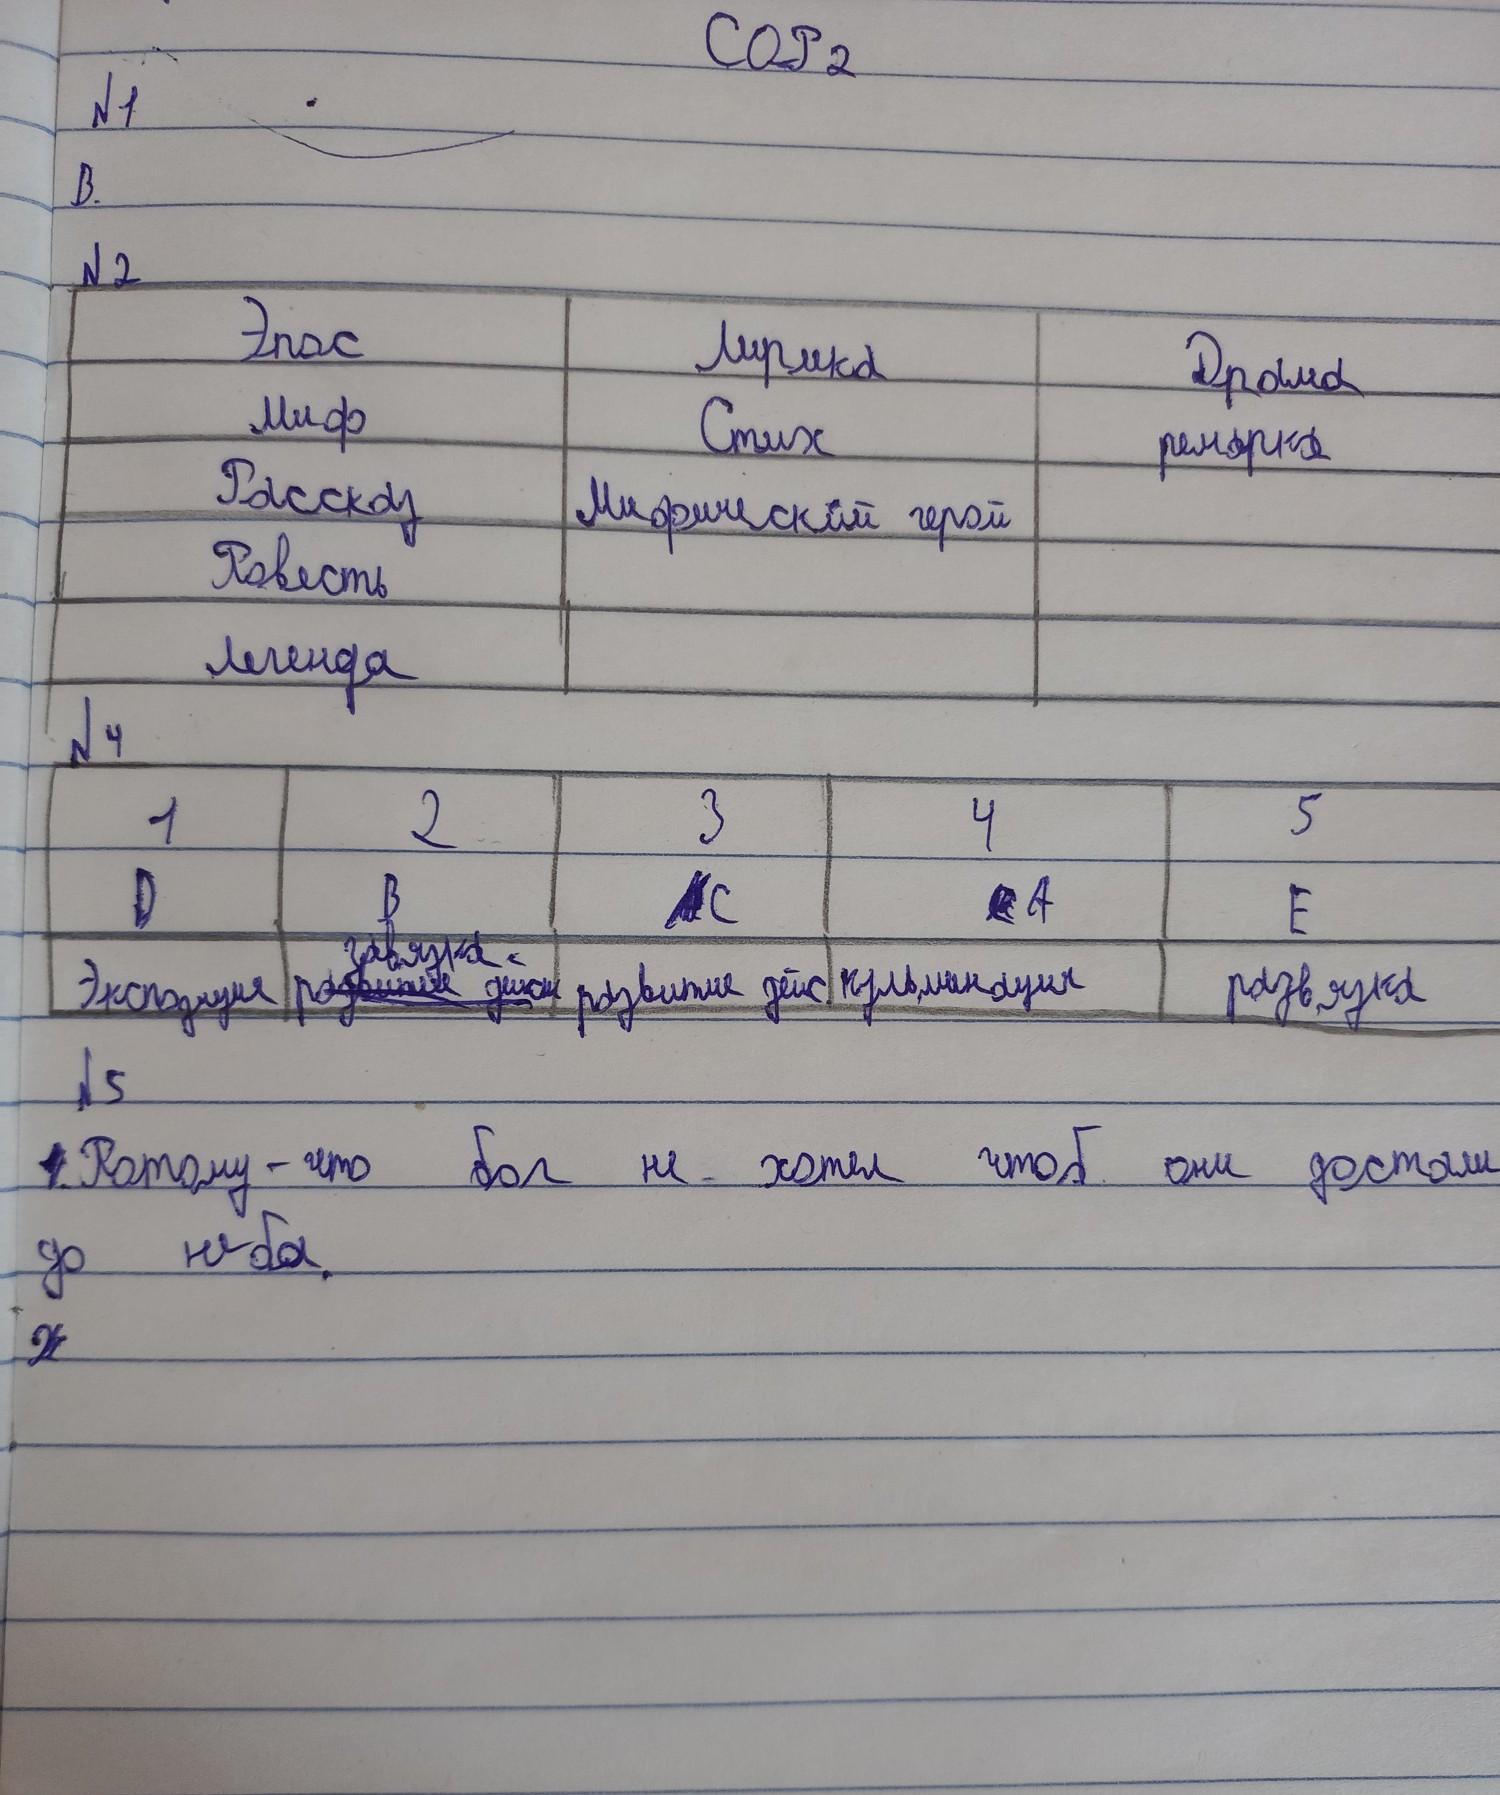 СОР2
№1
В.
№2
Эпос Лирика Драма
Миф Стих ремарка
Рассказ Мифический герой
Повесть
Легенда
№4
1 2 3 4 5
D B C A E
завязка
Экспозиция развитие дейст развитие дейс. кульминация развязка
№5
1. Потому-что бог не хотел чтоб они достали
до неба.
2